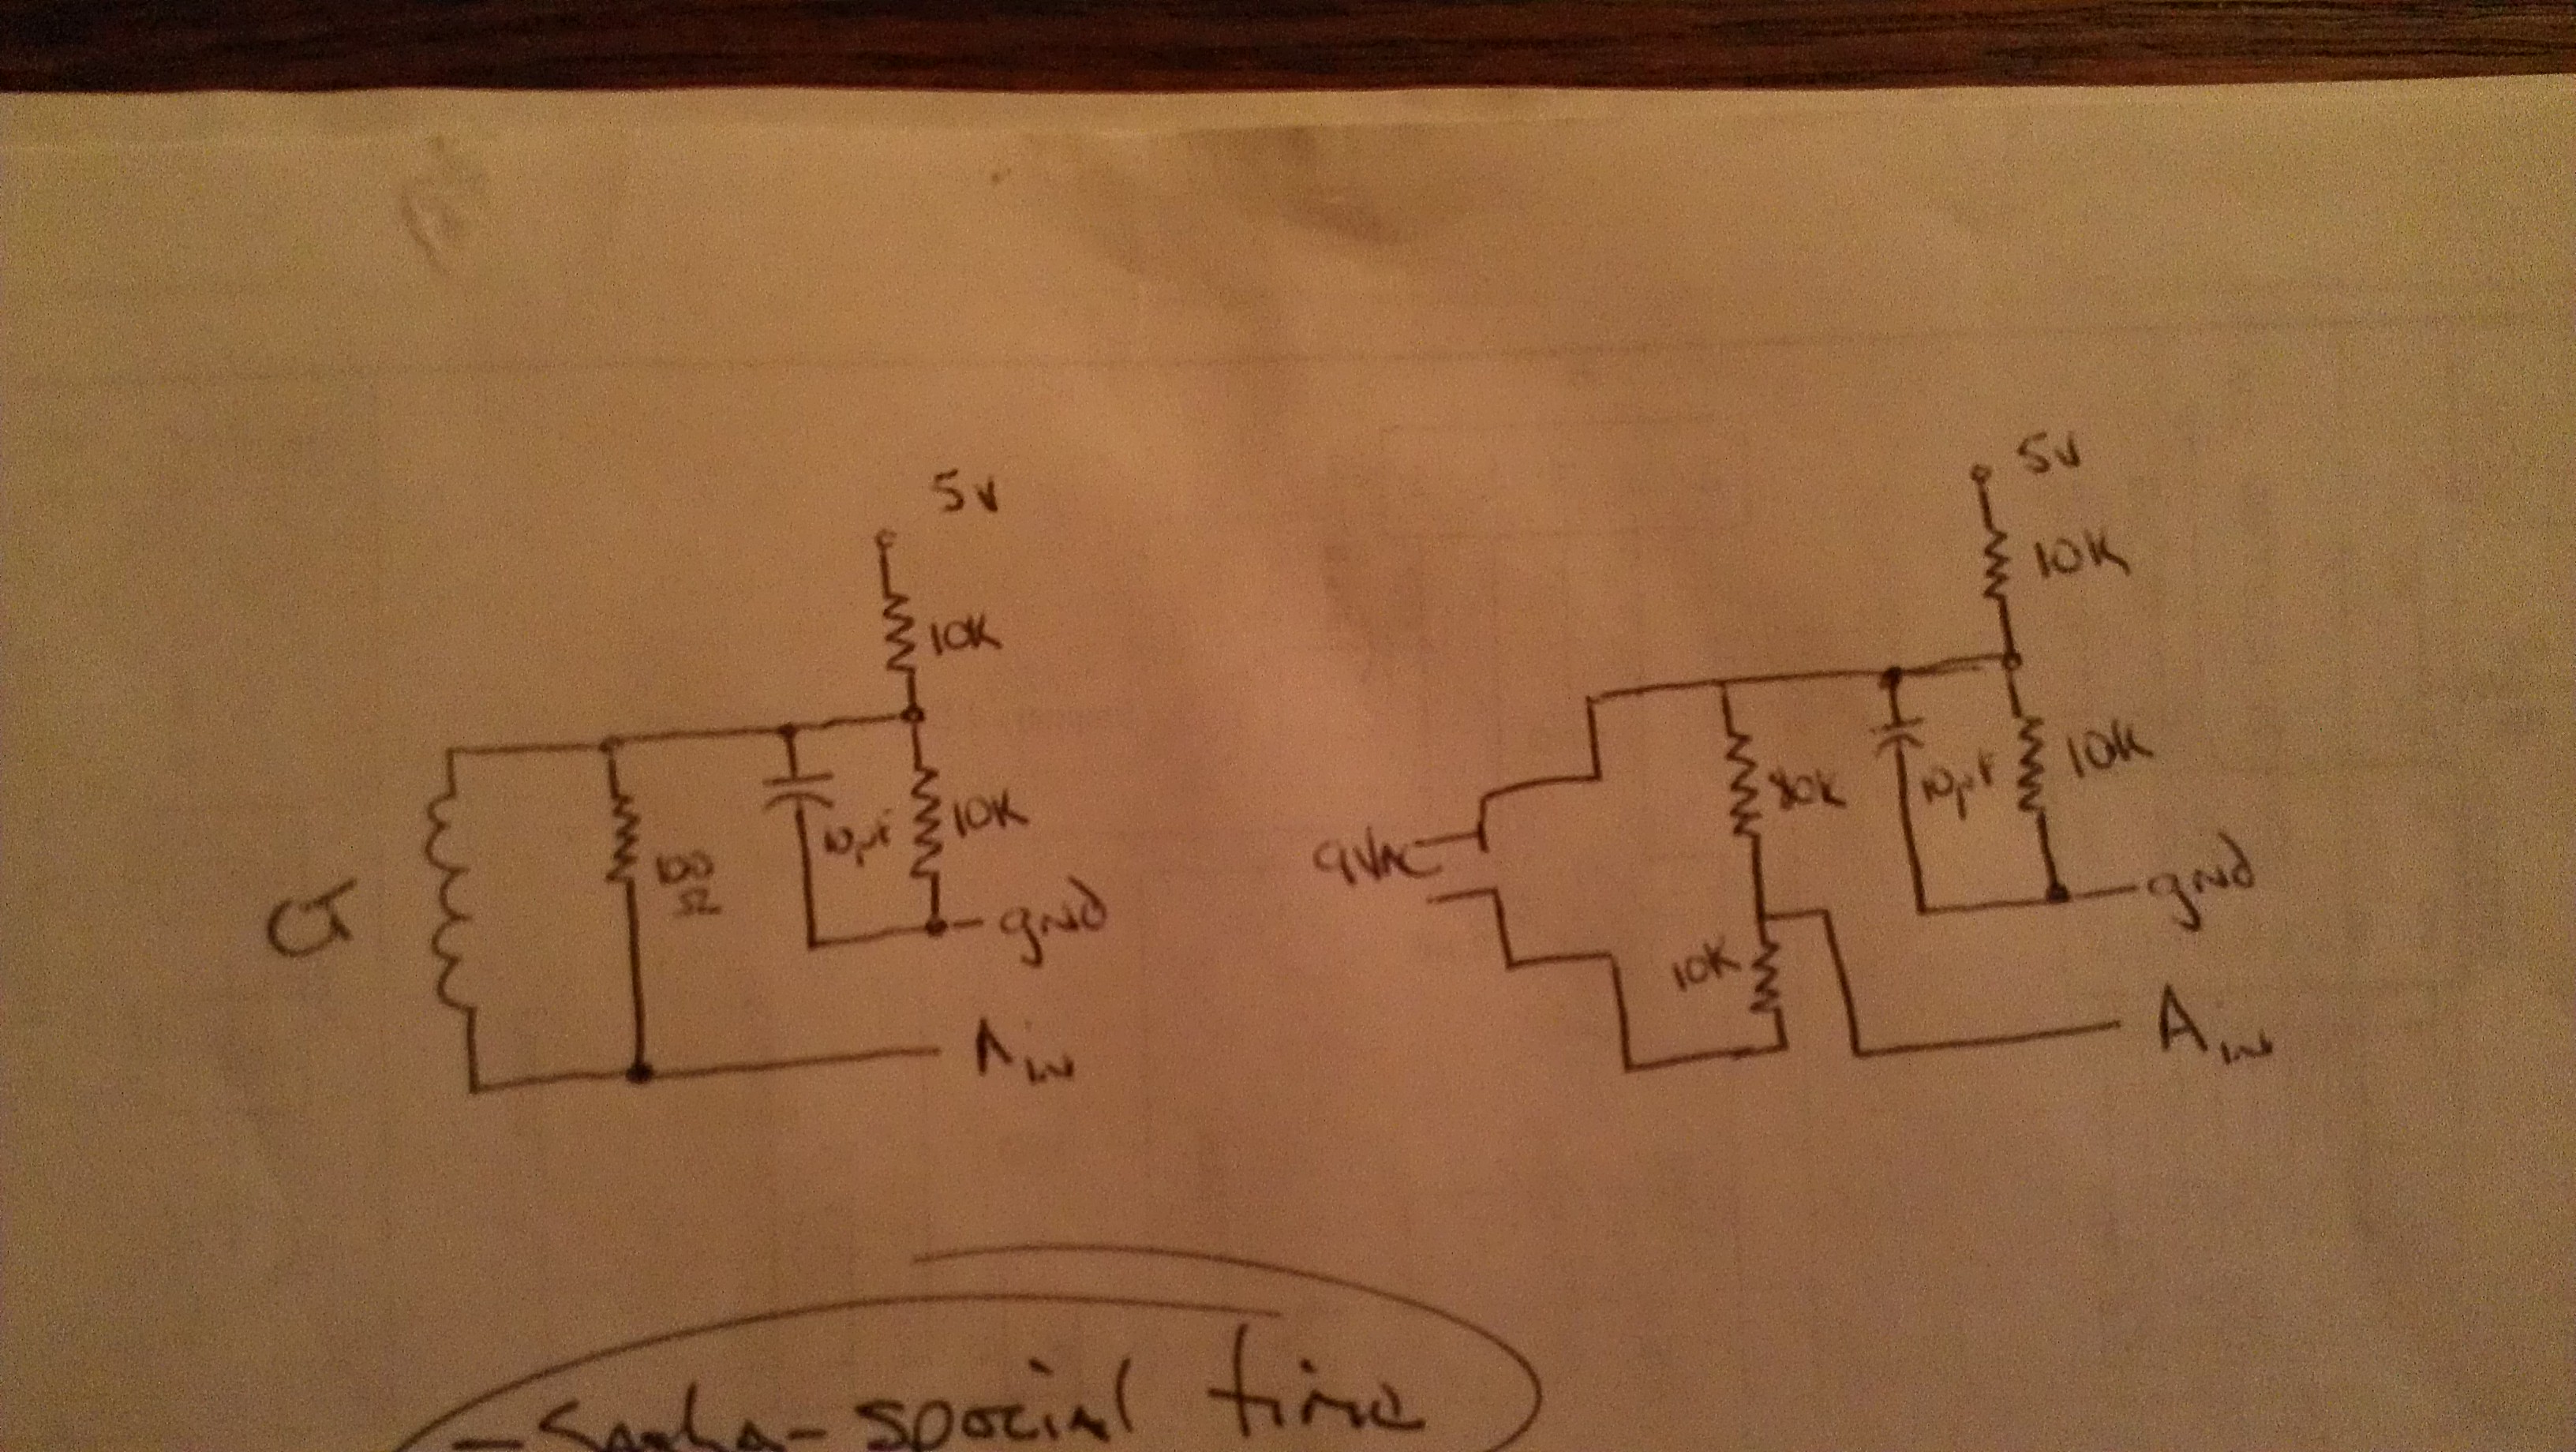 5v
10K
10K
10µF
100
Ω
CT
gnd
Ain
5v
10K
10K
10µF
80K
9VAC
10K
gnd
Ain
special time